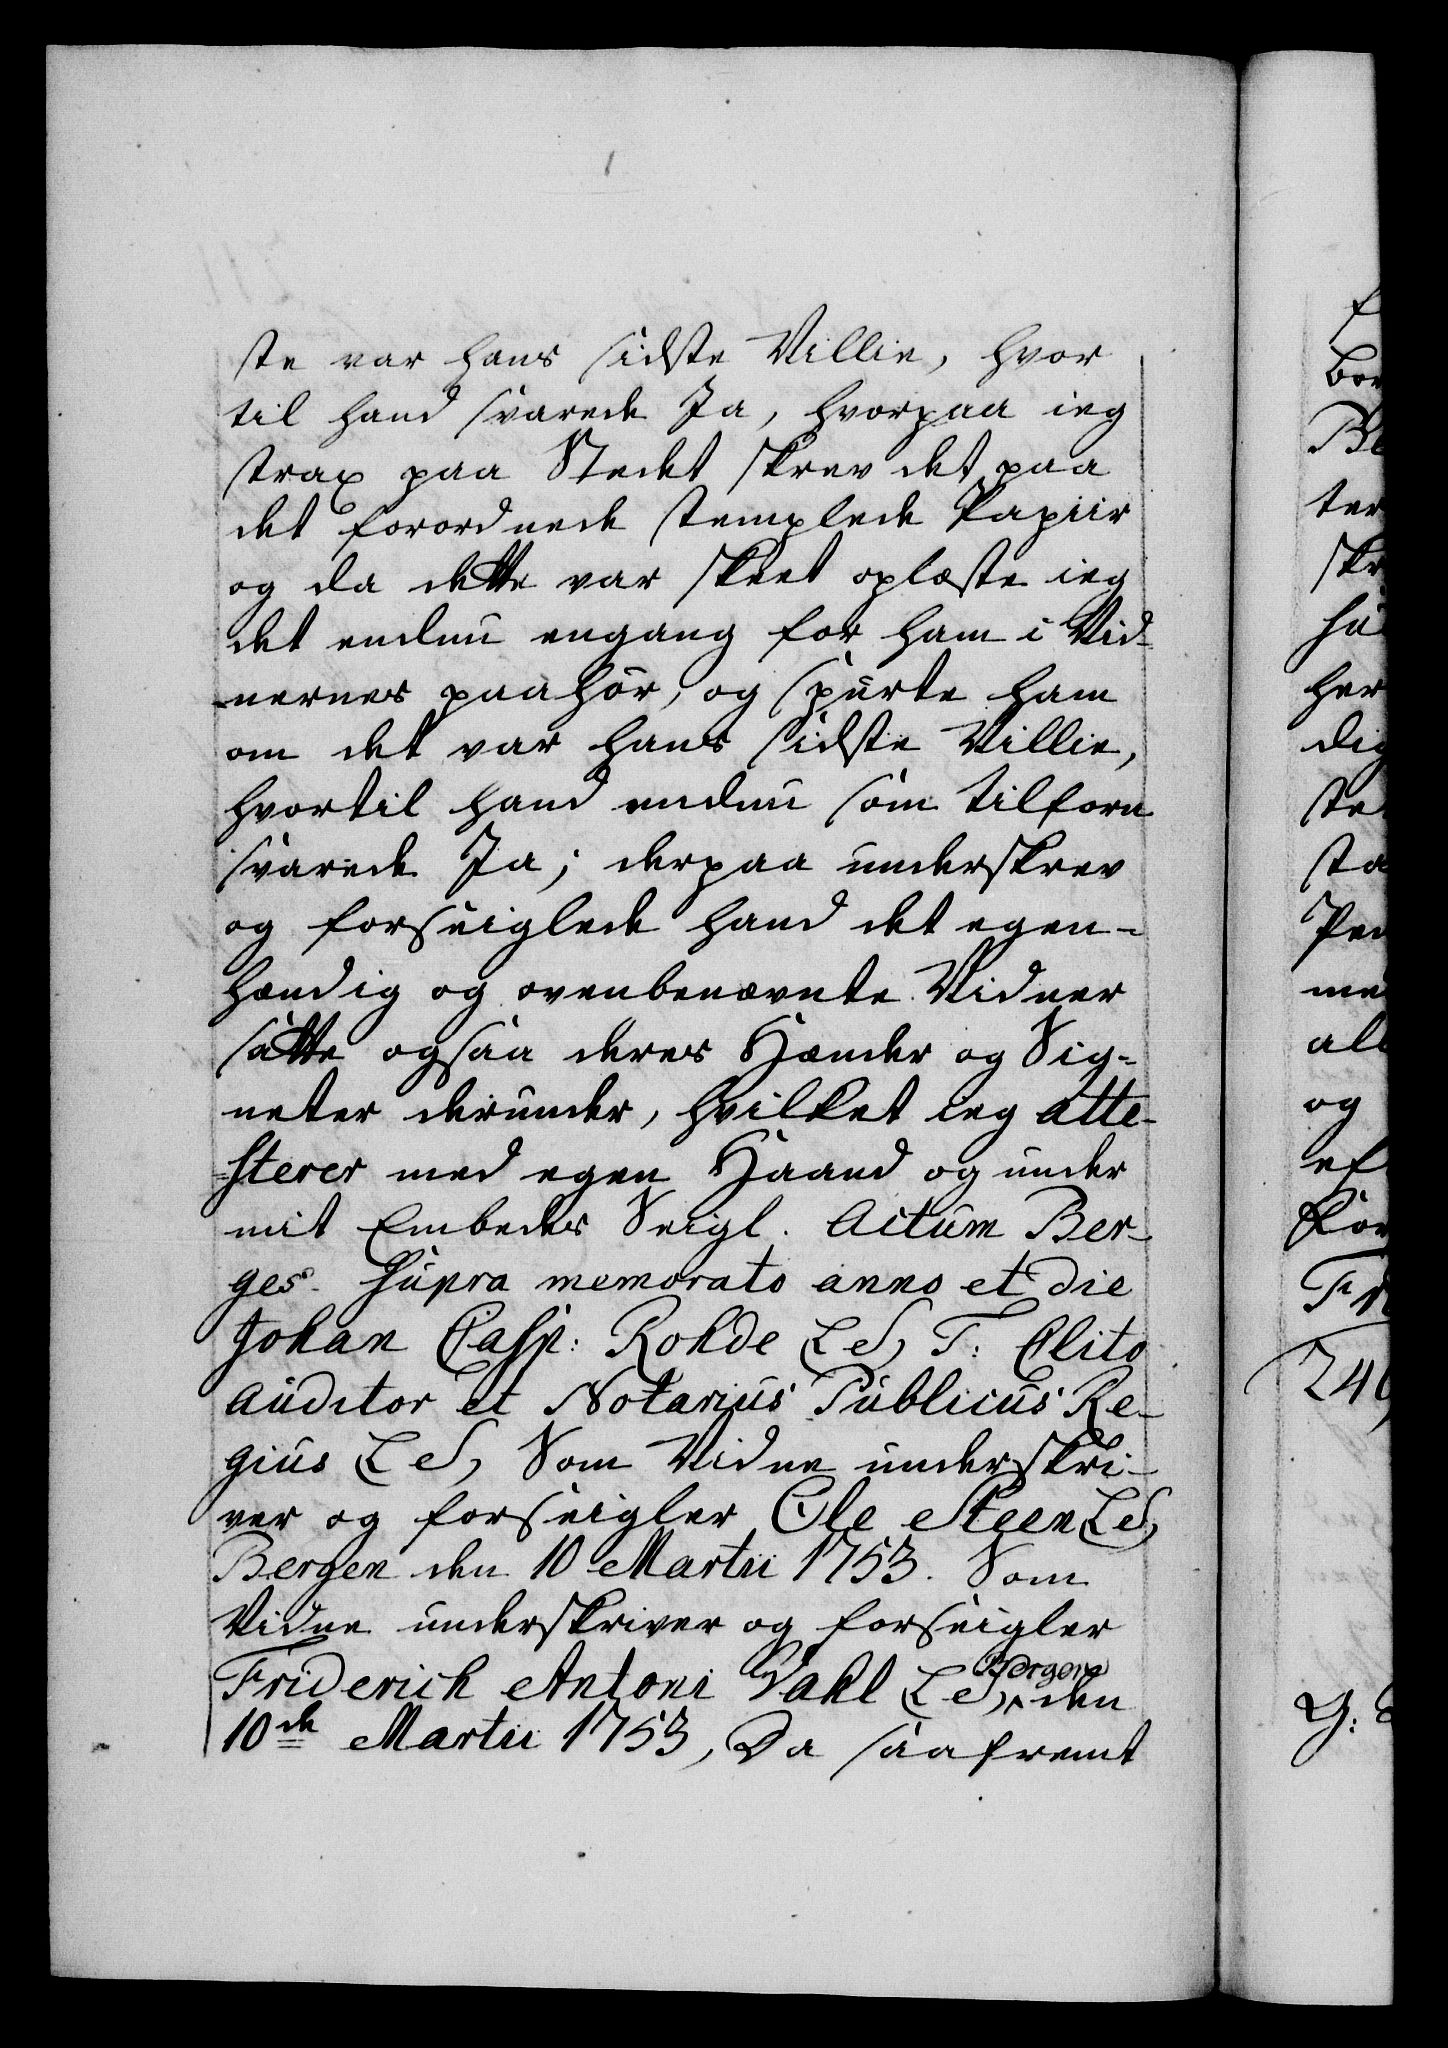 ste var hans sidste Villie, hvor
til hand svarede Ja, hvorpaa ieg
strax paa Stedet skrev det paa
det forordnede stemplede Papiir
og da dette var skeet oplæste ieg
det endnu engang for ham i Vid-
nernes paahör, og spurte ham
om det var hans sidste Villie,
hvortil hand endnu som tilforn
svarede Ja; derpaa underskrev
og forseiglede hand det egen-
hændig og ovenbenævnte Vidner
satte ogsaa deres Hænder og Sig-
neter derunder, hvilket ieg atte-
sterer med egen Haand og under
mit Embedes Seigl. Actum Ber-
ges. Supra memorato anno et die
Johan Casp: Rohde (L S) T: Clito
Auditor et Notarius Publicus Re-
gius (L S) Som Vidne underskri-
ver og forseigler Ole Steen (L S)
Bergen den 10 Martii 1753. Som
Vidne underskriver og forseigler
Friderich Antoni Vahl (L S) Bergen den
10de Martii 1753, Da saafremt